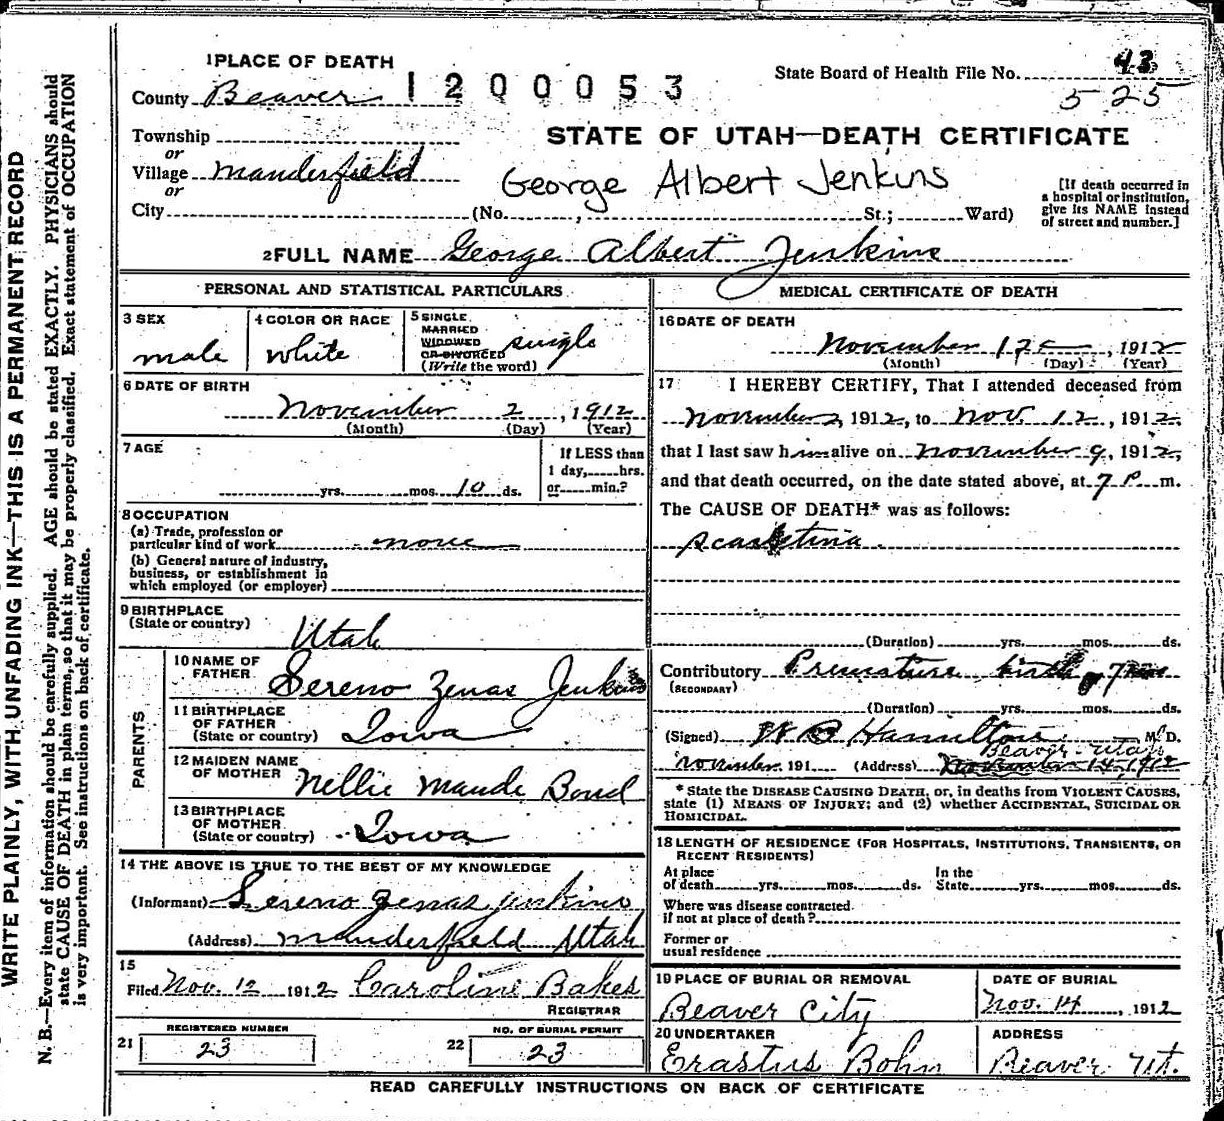 WRITE PLAINLY, WITH UNFADING INK—THIS IS A PERMANENT RECORD
N. B.—Every item of information should be carefully supplied. AGE should be stated EXACTLY. PHYSICIANS should
state CAUSE OF DEATH in plain terms, so that it may be properly classified. Exact statement of OCCUPATION
is very important. See instructions on back of certificate.
1 PLACE OF DEATH
County Beaver
1200053
State Board of Health File No. 43
525
Township
or
Village Manderfield
or
City (No. , St.; Ward)
STATE OF UTAH—DEATH CERTIFICATE
George Albert Jenkins
[If death occurred in
a hospital or institution,
give its NAME instead
of street and number.]
2 FULL NAME George Albert Jenkins
PERSONAL AND STATISTICAL PARTICULARS
3 SEX
male
4 COLOR OR RACE
white
5 SINGLE
MARRIED
WIDOWED
OR DIVORCED
(Write the word)
single
6 DATE OF BIRTH
November 2, 1912
(Month) (Day) (Year)
7 AGE
yrs. mos. 10 ds.
If LESS than
1 day, hrs.
or min.?
8 OCCUPATION
(a) Trade, profession or
particular kind of work none
(b) General nature of industry,
business, or establishment in
which employed (or employer)
9 BIRTHPLACE
(State or country)
Utah
PARENTS
10 NAME OF
FATHER
Sereno Zenas Jenkins
11 BIRTHPLACE
OF FATHER
(State or country) Iowa
12 MAIDEN NAME
OF MOTHER
Nellie Maude Bond
13 BIRTHPLACE
OF MOTHER
(State or country) Iowa
14 THE ABOVE IS TRUE TO THE BEST OF MY KNOWLEDGE
(Informant) Sereno Zenas Jenkins
(Address) Manderfield Utah
15
Filed Nov. 12 1912 Caroline Bakes
REGISTRAR
21 REGISTERED NUMBER
23
22 NO. OF BURIAL PERMIT
23
MEDICAL CERTIFICATE OF DEATH
16 DATE OF DEATH
November 12, 1912
(Month) (Day) (Year)
17 I HEREBY CERTIFY, That I attended deceased from
November 2, 1912, to Nov. 12, 1912,
that I last saw him alive on November 9, 1912,
and that death occurred, on the date stated above, at 7 P. m.
The CAUSE OF DEATH* was as follows:
Scarletina.
(Duration) yrs. mos. ds.
Contributory Premature birth 7 mos
(SECONDARY)
(Duration) yrs. mos. ds.
(Signed) Hamilton M. D.
Beaver - Utah
November 191 (Address) November 14-1912
* State the DISEASE CAUSING DEATH, or, in deaths from VIOLENT CAUSES,
state (1) MEANS OF INJURY; and (2) whether ACCIDENTAL, SUICIDAL OR
HOMICIDAL.
18 LENGTH OF RESIDENCE (FOR HOSPITALS, INSTITUTIONS, TRANSIENTS, OR
RECENT RESIDENTS)
At place
of death yrs. mos. ds.
In the
State yrs. mos. ds.
Where was disease contracted
if not at place of death?
Former or
usual residence
19 PLACE OF BURIAL OR REMOVAL
Beaver City
DATE OF BURIAL
Nov. 14, 1912
20 UNDERTAKER
Erastus Bohn
ADDRESS
Beaver Ut.
READ CAREFULLY INSTRUCTIONS ON BACK OF CERTIFICATE